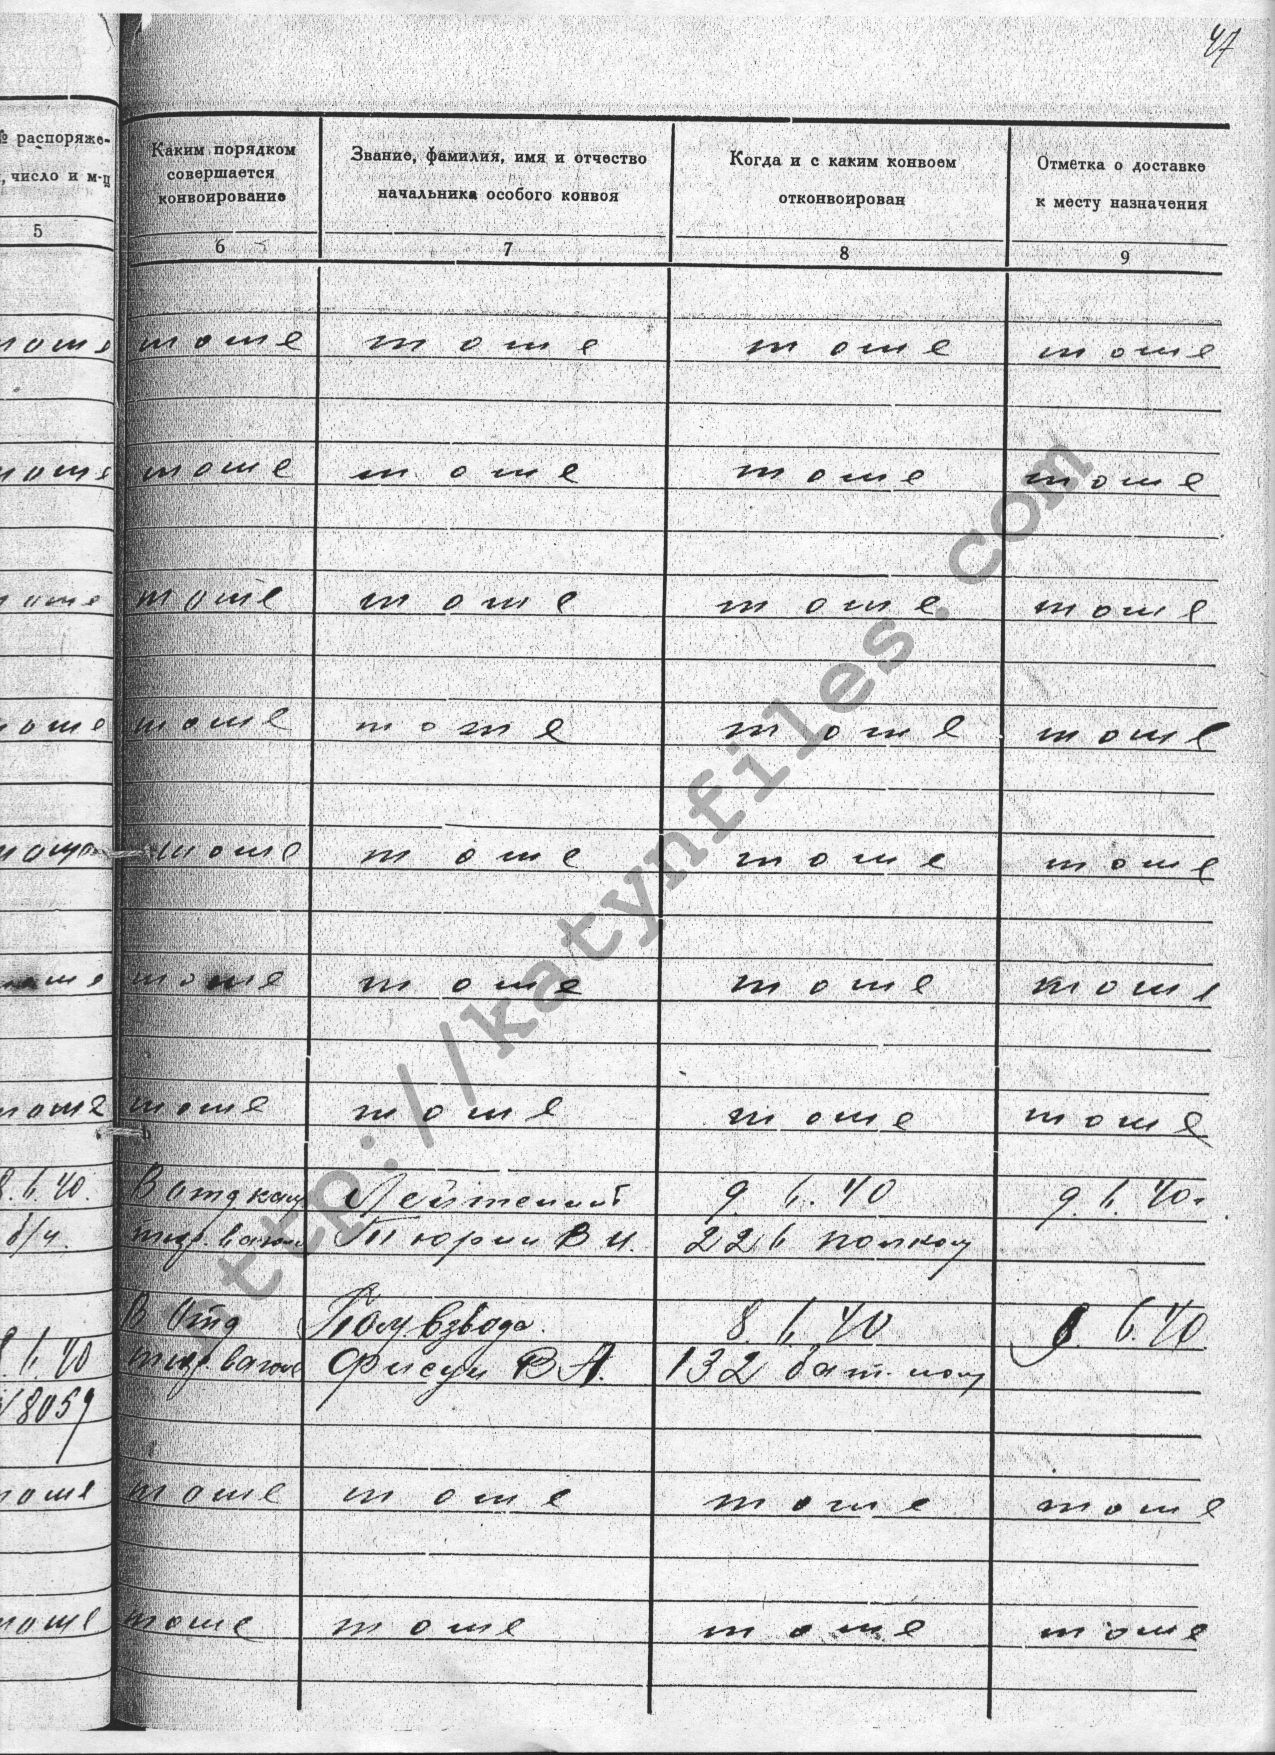 47
№ распоряже- Каким порядком Звание, фамилия, имя и отчество Когда и с каким конвоем Отметка о доставке
число и м-ц совершается начальника особого конвоя отконвоирован к месту назначения
конвоирование
5 6 7 8 9
тоже тоже тоже тоже тоже
тоже тоже тоже тоже тоже
тоже тоже тоже тоже тоже
тоже тоже тоже тоже тоже
тоже тоже тоже тоже тоже
тоже тоже тоже тоже тоже
тоже тоже тоже тоже тоже
8.6.40. В отд Лейтенант 9.6.40 9.6.40г
б/н. Тюрин В И. 226 полком
В отд Пом взвода. 8 6 40 8. 6.40.
6 40 В А. 132 бат.
/8059
тоже тоже тоже тоже тоже
тоже тоже тоже тоже тоже
http://katynfiles.com